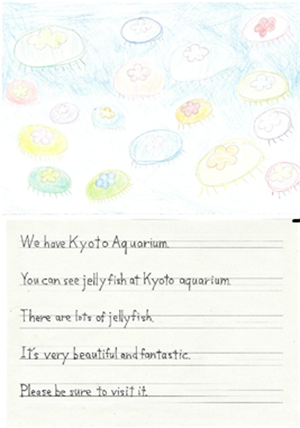 We have Kyoto Aquarium.
You can see jellyfish at Kyoto aquarium.
There are lots of jellyfish.
It's very beautiful and fantastic.
Please be sure to visit it.